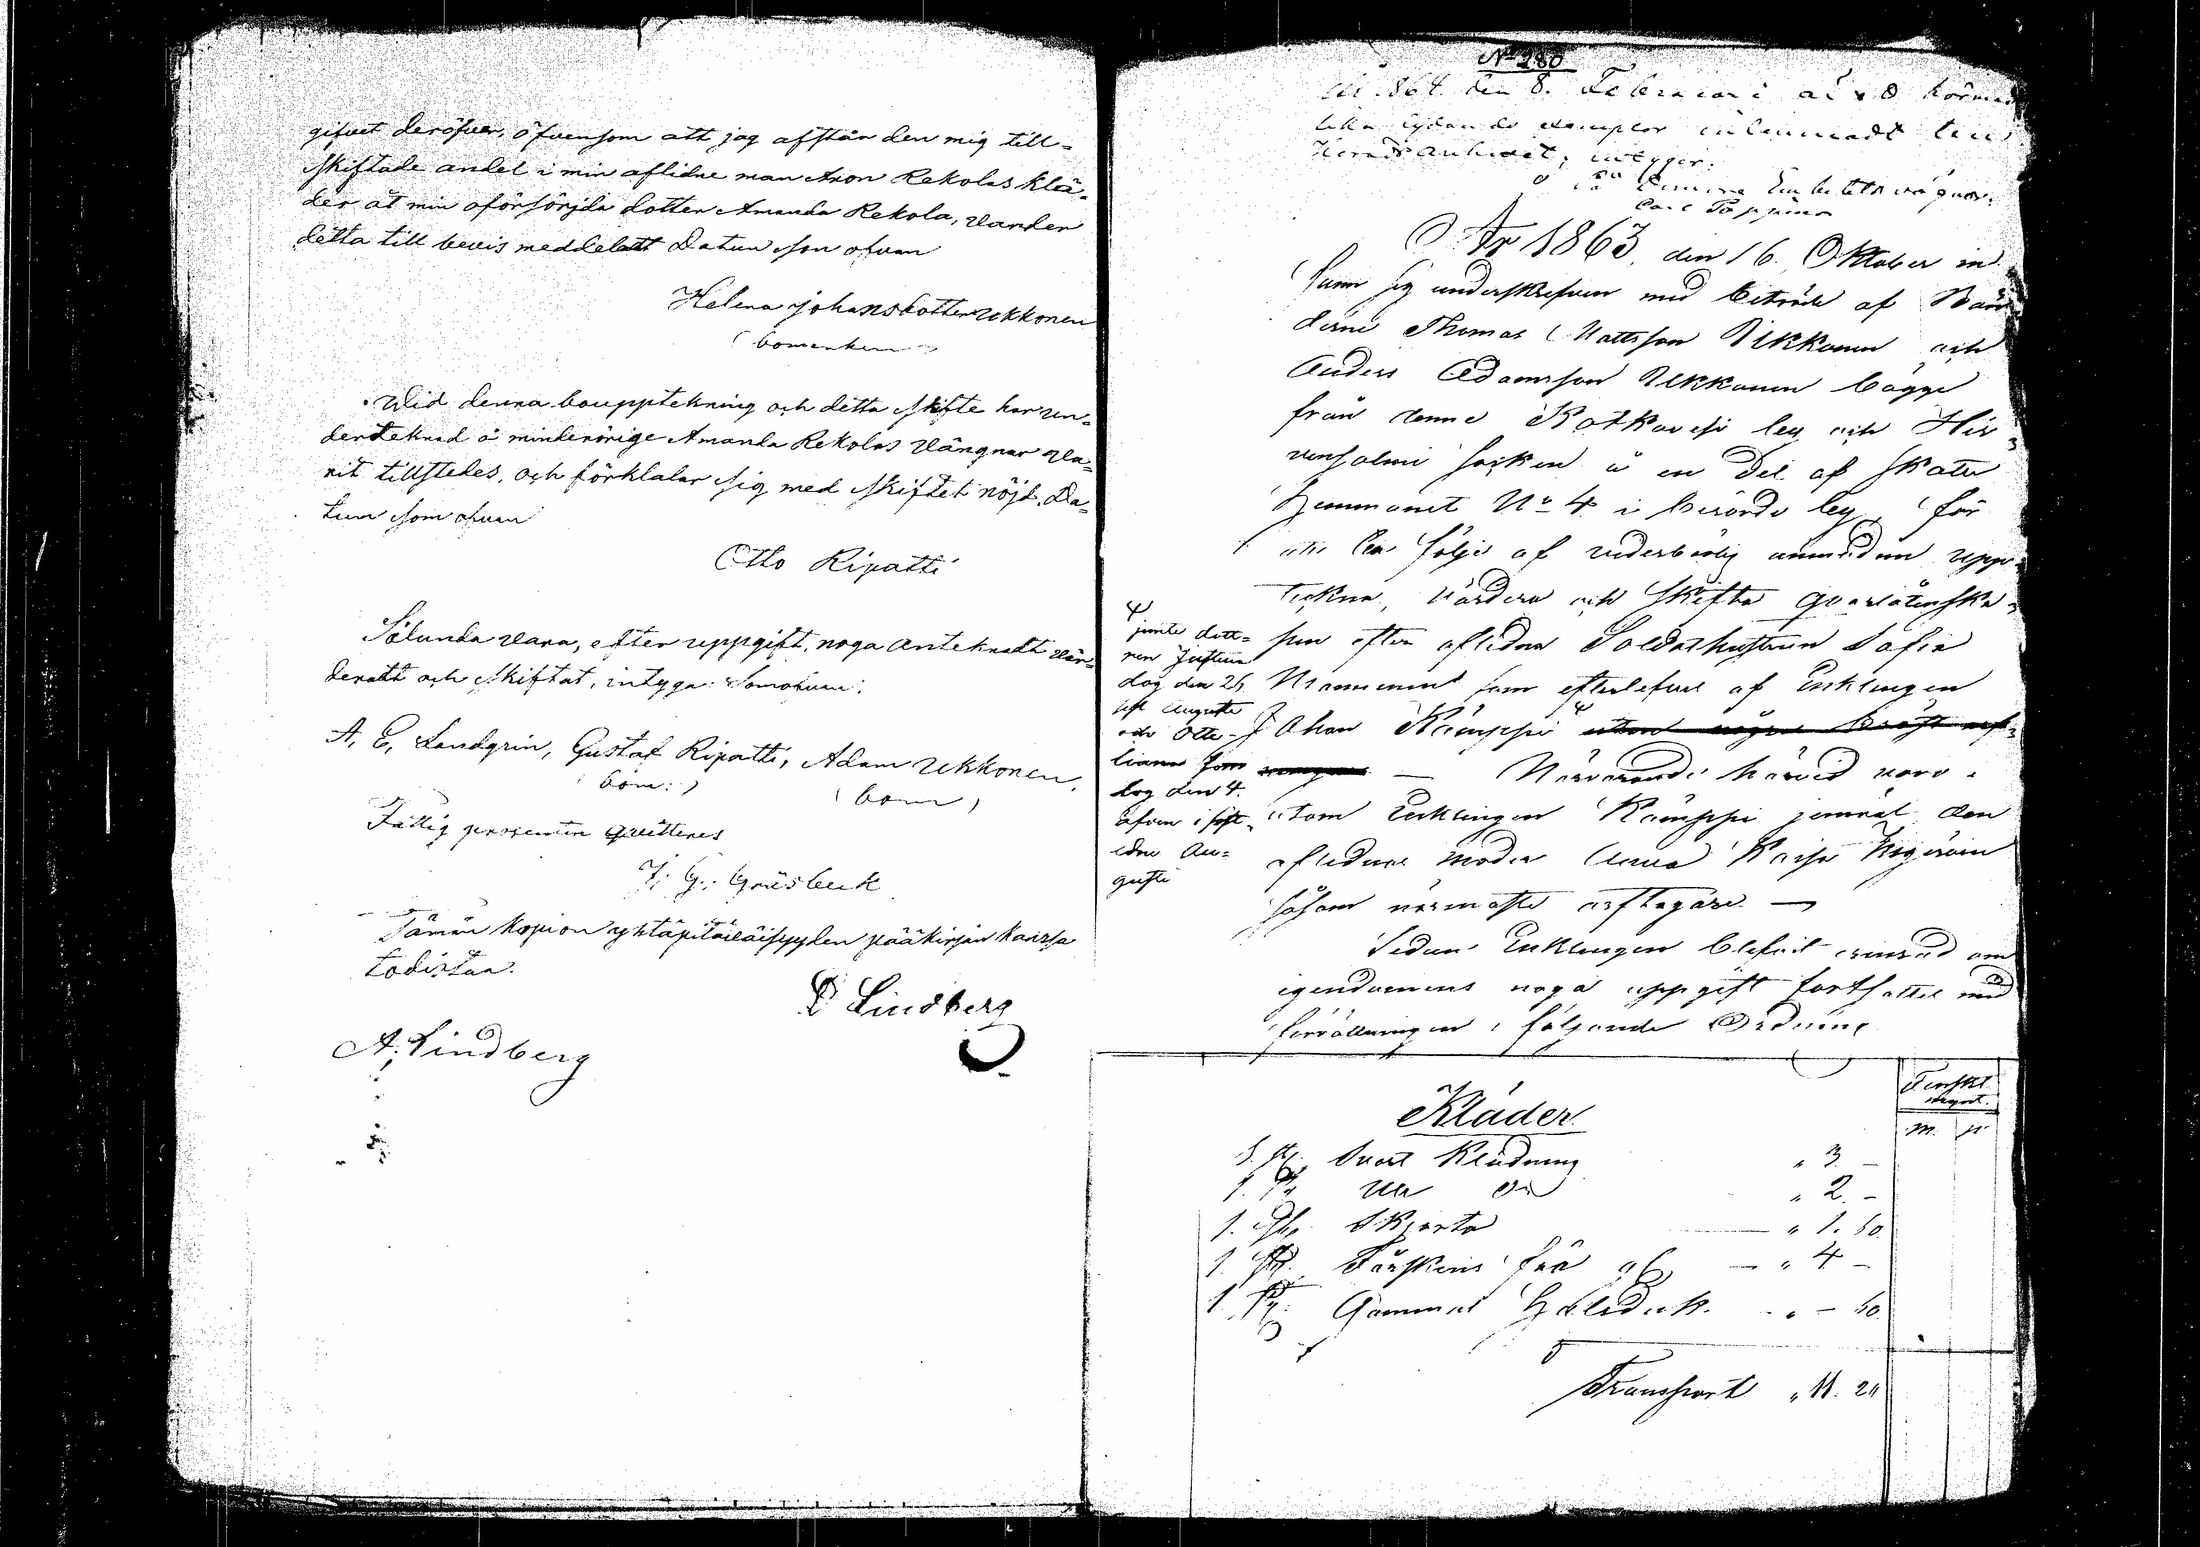 gifvet deröfver, äfvensom att jag afstår den mig till-
skiftade andel i min aflidne man Aron Rekolas klä-
der åt min oförsörjda dotter Amanda Rekola, varder
detta till bevis meddelatt Datum som ofvan
Helena Johansdotter Ukkonen
(bomärken)
Wid denna boupptekning och detta skifte har un-
derteknad å minderårige Amanda Rekolas vängnar va-
rit tillstedes, och förklalar sig med skiftet nöjd. Da-
tum som ofvan
Otto Ripatti
Sålunda vara, efter uppgift, noga antecknadt vär-
deratt och skiftat, intyga: Somofvan.
A. E. Landgrin, Gustaf Ripatti, Adam Ukkonen,
(bom:) (bom)
Fattig procenten quitteres
J. G. Gråsbeck
Tämän kopion yhtäpitäväisyyden pääkirjan kanssa
todistaa.
E Lindberg
A. Lindberg
No 280
1864 den 8. Februari
lika lydande exemplar inlemnadt till
Häradsarkivet, intyger.
Embetets vägnar.
År 1863, den 16 Oktober in
fann sig underskrefven med biträde af Bön
derne Thomas Mattsson Ukkonen och
Anders Adamsson Ukkonen bägge
från denne Kotkavesi by och Hir-
vensalmi socken å en Del af Skatte
Hemmanet No 4 i berörde by, för
att till följe af vederbörlig anmodan upp-
teckna, värdera och skifta qvarlåtenska-
pen efter aflidna Soldathustrun Sofia
som efterlefves af Enklingen
Johan Kämppi utan någre
Närvarande härvid voro
utom Enklingen Kämppi jemväl den
aflidnes moder Anna Kaisa
såsom närmaste arftagare. —
jemte dott-
ren Justina
dog den 26
sist Augusti
och Otte-
liana som
dog den 4.
äfven i sist-
ledne Au-
gusti
Sedan Enklingen blefvit erinrad om
egendomens noga uppgift fortsattes med
förrättningen i följande Ordning
Finskt
mynt.
M. p.
Kläder
1. St. Svart Klädning " 3. —
1. St. Ull do " 2. —
1. St. Skjorta " 1. 60
1. St. Fårskins — " 4 —
1. St. Gammal Halsduk. " — 60
Transport " 11. 20